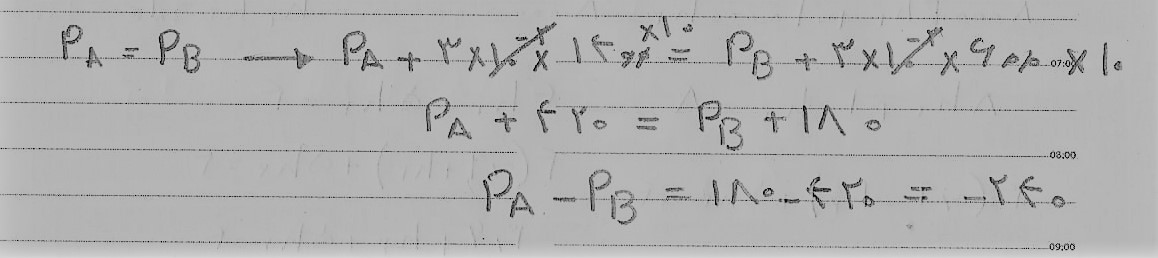 P_A = P_B → P_A + ۳×۱۰^-۲ × ۱۴۰۰ ×۱۰ = P_B + ۳×۱۰^-۲ × ۶۰۰ × ۱۰
07:00
P_A + ۴۲۰ = P_B + ۱۸۰
08:00
P_A - P_B = ۱۸۰ - ۴۲۰ = -۲۴۰
09:00